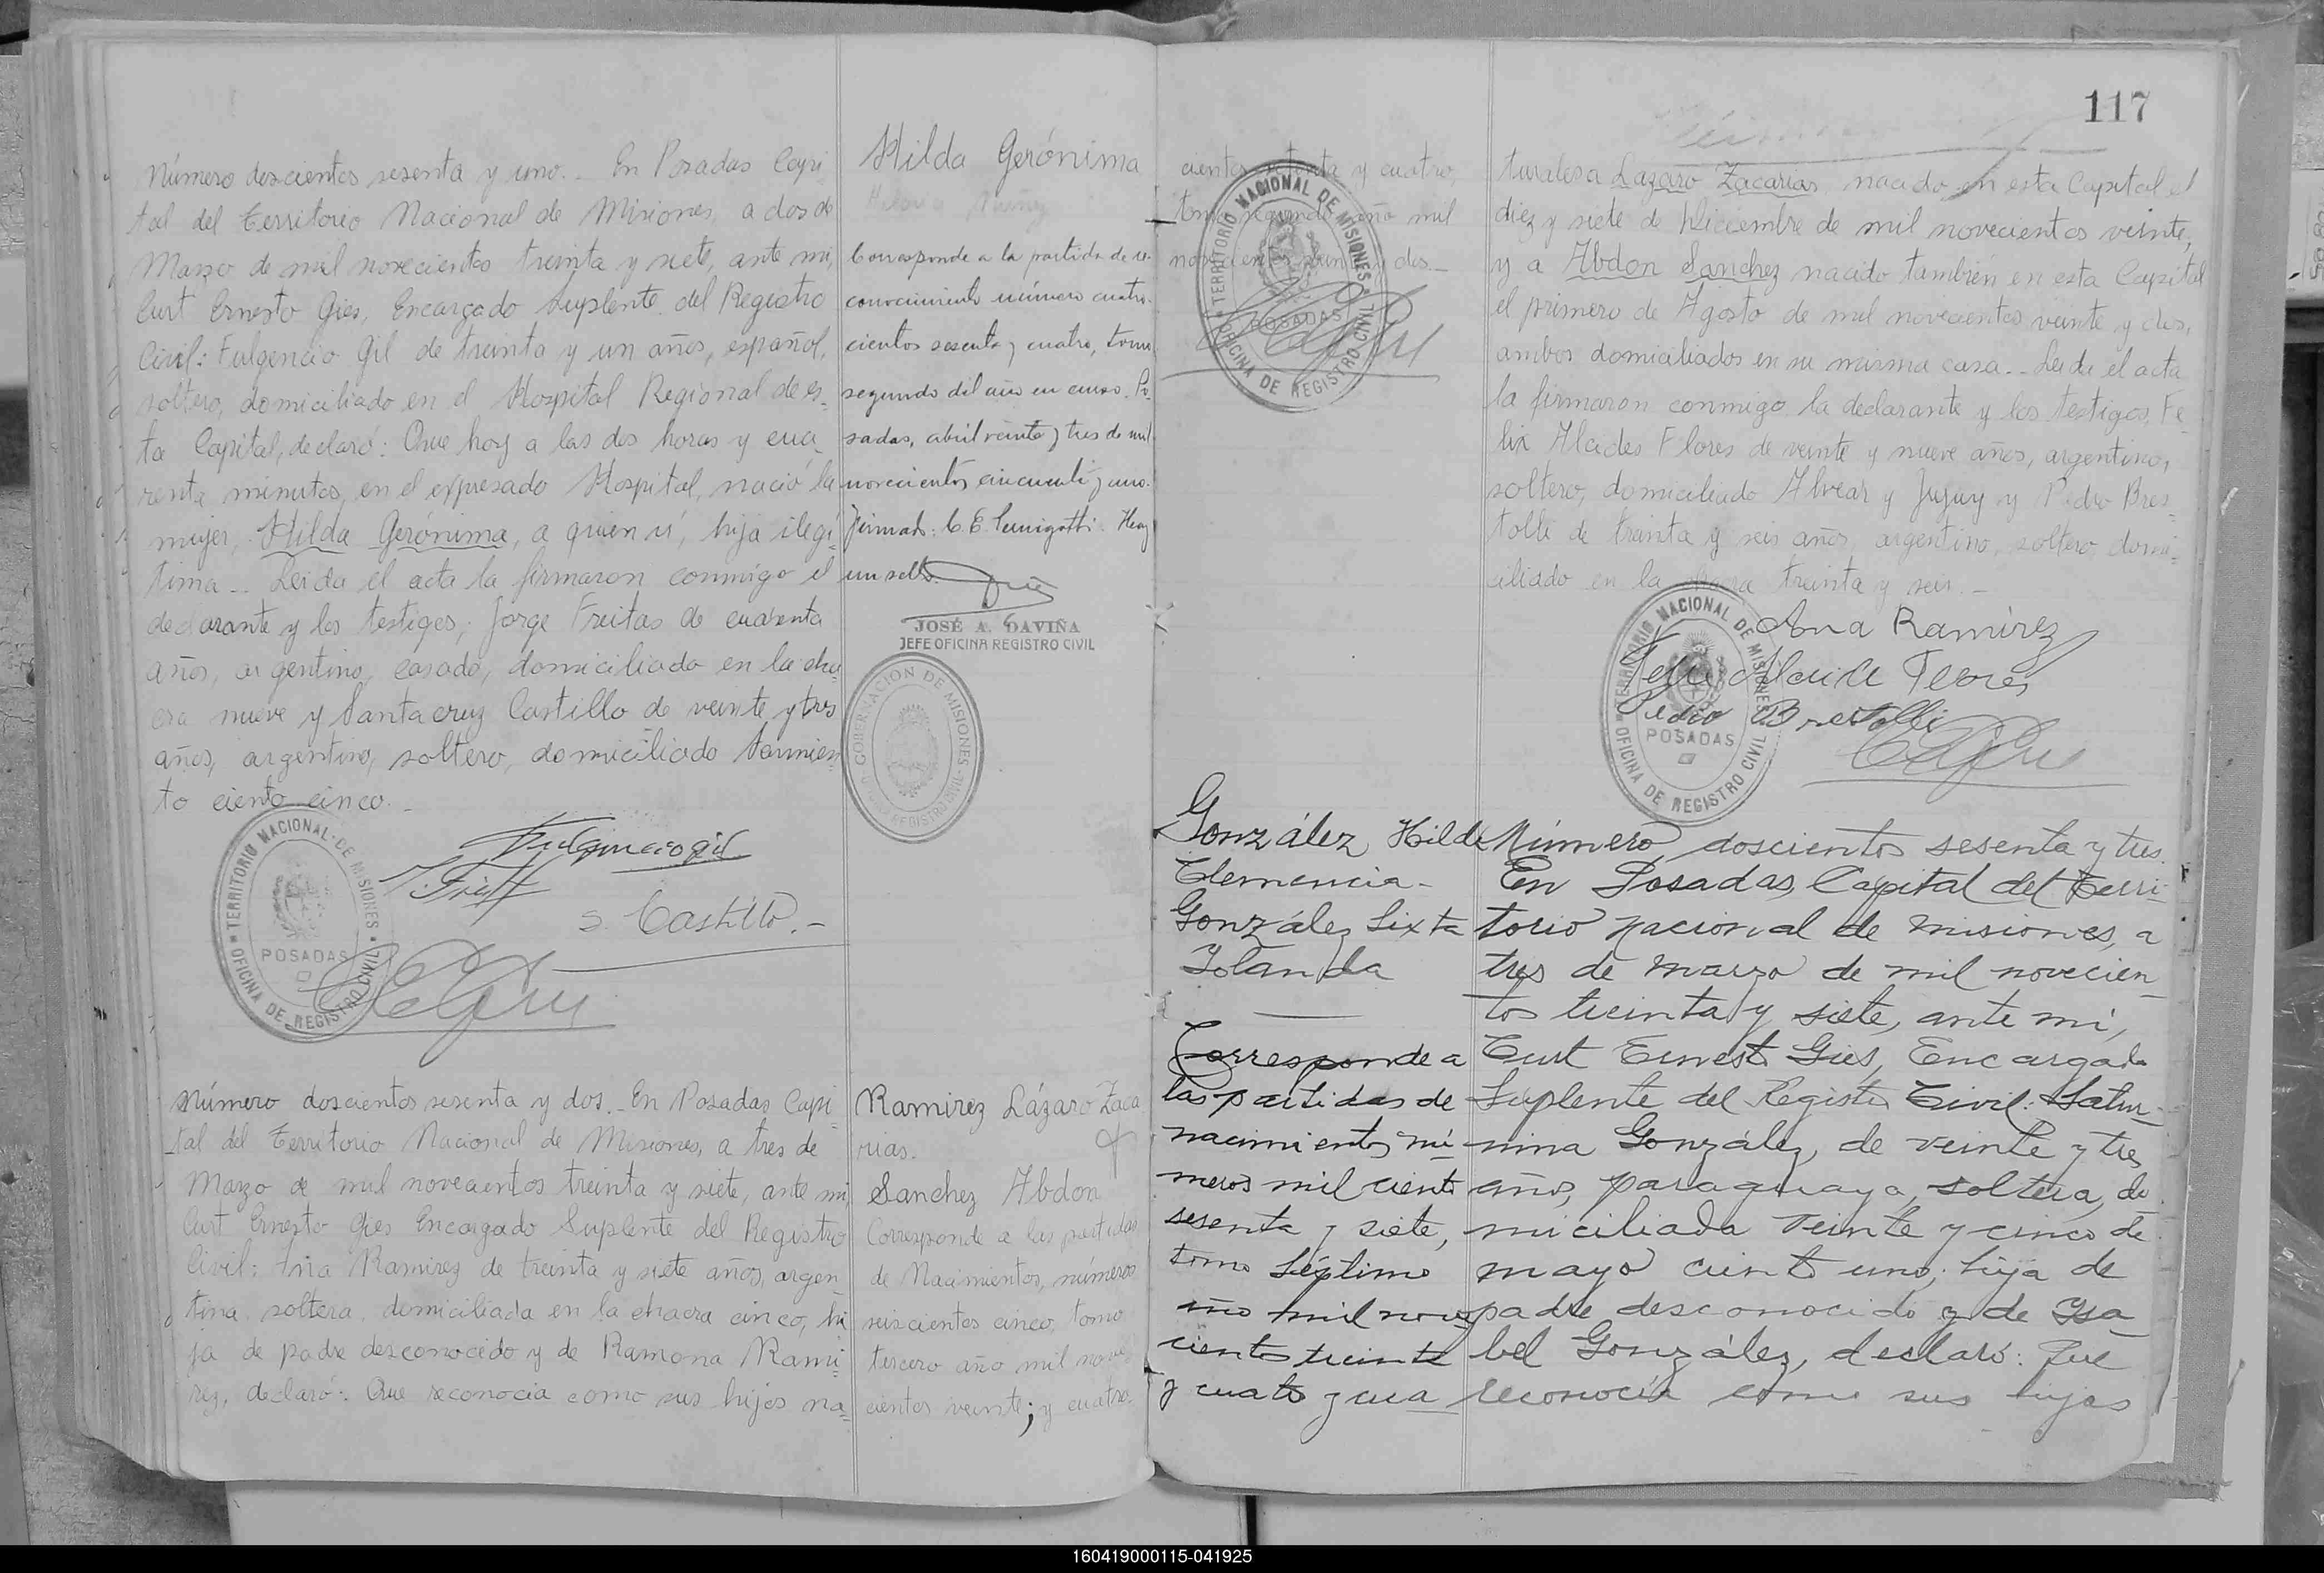 Número doscientos sesenta y uno.. En Posadas Capi-
tal del Territorio Nacional de Misiones, a dos de
Marzo de mil novecientos treinta y siete, ante mi,
Curt Ernesto Gies, Encargado Suplente del Registro
Civil: Fulgencio Gil de treinta y un años, español,
soltero, domiciliado en el Hospital Regional de es-
ta Capital, declaró: Que hoy a las dos horas y cua-
renta minutos, en el expresado Hospital, nació la
mujer, Hilda Gerónima, a quien ví, hija ilegí-
tima.. Leida el acta la firmaron conmigo el
declarante y los testigos, Jorge Freitas de cuarenta
años, argentino, casado, domiciliado en la cha-
cra nueve y Santa cruz Castillo de veinte y tres
años, argentino, soltero, domiciliado Sarmien-
to ciento cinco.-
Fulgencio gil
S. Castillo.-
TERRITORIO NACIONAL DE MISIONES
POSADAS
OFICINA DE REGISTRO CIVIL
Hilda Gerónima
Corresponde a la partida de re-
conocimiento número cuatro-
cientos sesenta y cuatro, tomo
segundo del año en curso. Po-
sadas, abril veinte y tres de mil
novecientos cincuenta y uno.
Firmado: C. E. Hay
un sello.
JOSÉ A. DAVIÑA
JEFE OFICINA REGISTRO CIVIL
GOBERNACION DE MISIONES
REGISTRO CIVIL
Número doscientos sesenta y dos.. En Posadas Capi-
tal del Territorio Nacional de Misiones, a tres de
Marzo de mil novecientos treinta y siete, ante mi,
Curt Ernesto Gies Encargado Suplente del Registro
Civil: Ana Ramirez de treinta y siete años, argen-
tina, soltera, domiciliada en la chacra cinco, hi-
ja de padre desconocido y de Ramona Rami-
rez, declaró: Que reconocia como sus hijos na-
Ramirez Lázaro Zaca
rias.
Sanchez Abdon
Corresponde a las partidas
de Nacimientos, números
seiscientos cinco, tomo
tercero año mil nove
cientos veinte; y cuatro-
117
cientos setenta y cuatro,
tomo segundo año mil
novecientos veinte y dos.-
TERRITORIO NACIONAL DE MISIONES
POSADAS
OFICINA DE REGISTRO CIVIL
turalesa Lazaro Zacarias, nacido en esta Capital el
diez y siete de Diciembre de mil novecientos veinte,
y a Abdon Sanchez nacido también en esta Capital
el primero de Agosto de mil novecientos veinte y dos,
ambos domiciliados en su misma casa.- Leida el acta
la firmaron conmigo la declarante y los testigos, Fe-
lix Alcides Flores de veinte y nueve años, argentino,
soltero, domiciliado Alvear y Jujuy y Pedro Bres-
tolli de treinta y seis años, argentino, soltero, domi-
ciliado en la chacra treinta y seis.-
Ana Ramirez
Felix Alcide Flores
Pedro Brestolli
TERRITORIO NACIONAL DE MISIONES
POSADAS
OFICINA DE REGISTRO CIVIL
González Hilda
Clemencia-
González Sixta
Yolanda
Corresponde a
las partidas de
nacimientos nú-
meros mil ciento
sesenta y siete,
tomo séptimo
año mil nove-
cientos treinta
y cuatro y cua-
Número doscientos sesenta y tres.
En Posadas, Capital del Terri-
torio nacional de Misiones, a
tres de marzo de mil novecien-
tos treinta y siete, ante mí,
Curt Ernesto Gies, Encargado
Suplente del Registro Civil: Satur-
nina González, de veinte y tres
años, paraguaya, soltera, do-
miciliada Veinte y cinco de
mayo ciento uno, hija de
padre desconocido y de Ysa-
bel González, declaró: Que
reconocía como sus hijas
160419000115-041925